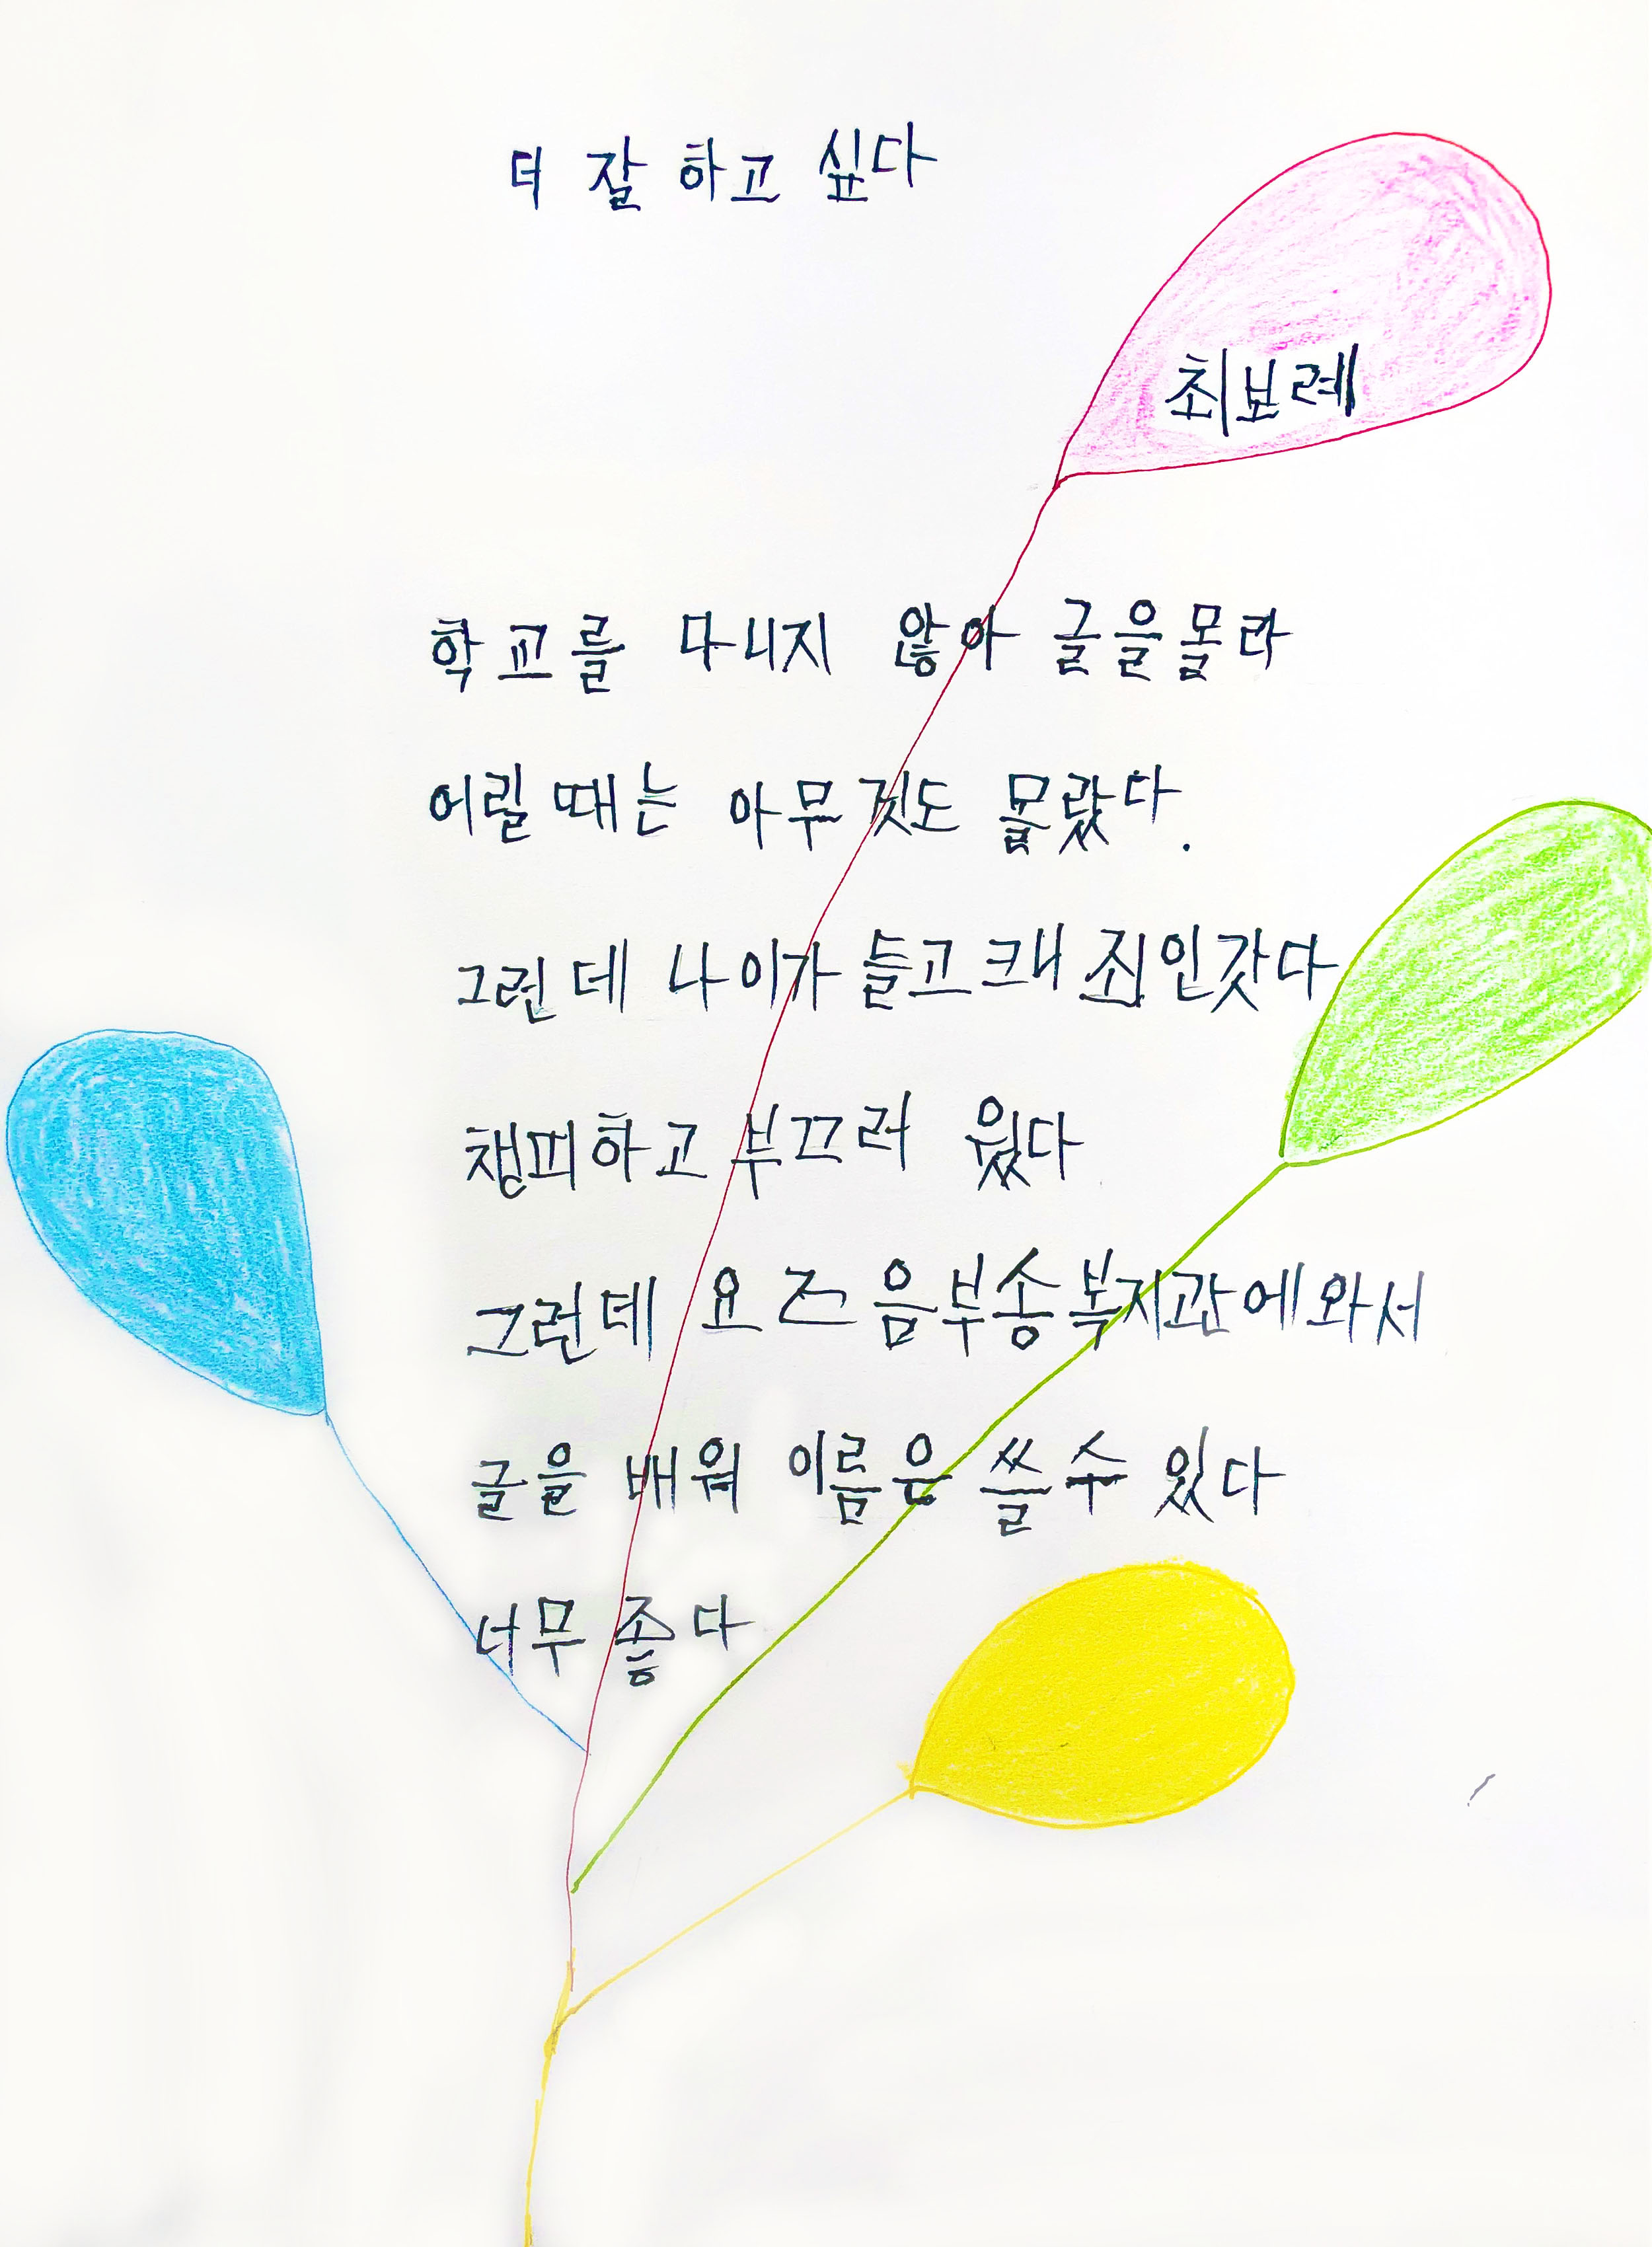 더 잘 하고 싶다
최보례
학교를 다니지 않아 글을몰라
어릴 때는 아무것도 몰랐다.
그런데 나이가 들고크내 죄인갓다
챙피하고 부끄러 웠다
그런데 요즈음부송복지관에와서
글을 배워 이름은 쓸수 있다
너무 좋다